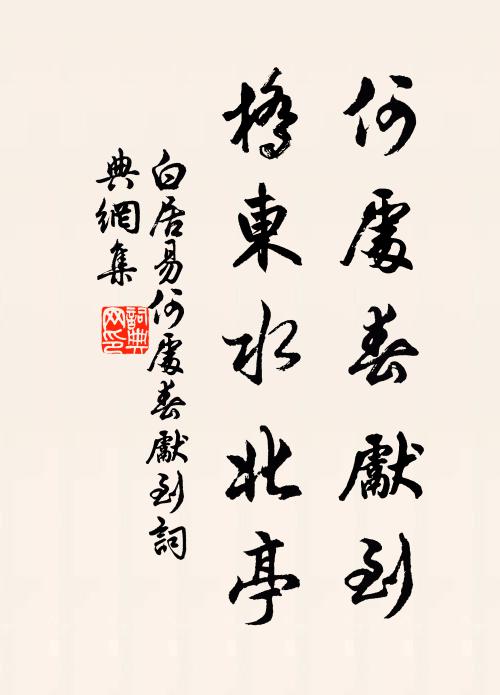 何處春獻到
橋東水北亭
白居易何處春獻到詞
典網集
詞典
网印